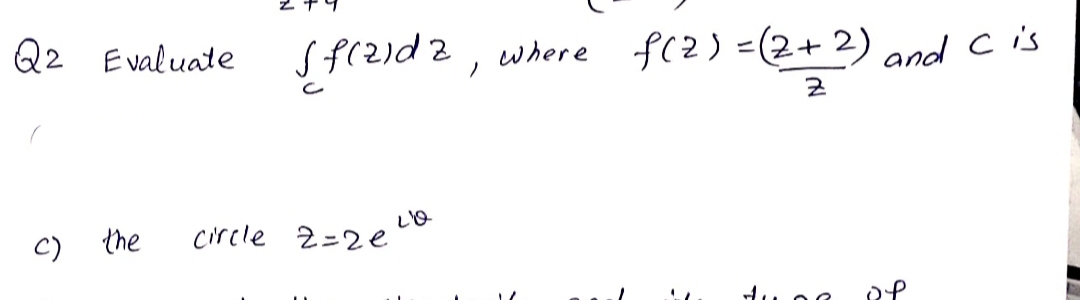 z+4
Q2 Evaluate ∫_C f(z)dz, where f(z) = (z+2)/z and C is
c) the circle z=2e^{iθ}
of